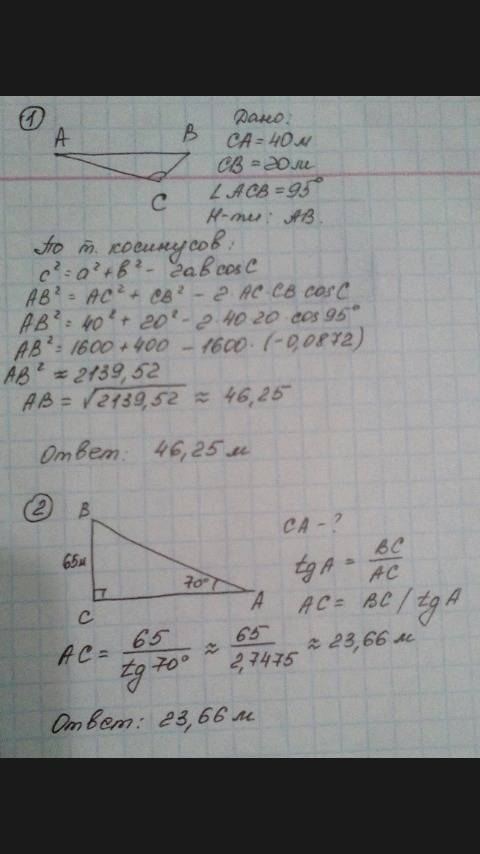 1
A
B
C
Дано:
CA = 40 м
CB = 20 м
∠ACB = 95°
Н-ти: AB.
По т. косинусов:
c² = a² + b² - 2ab cosC
AB² = AC² + CB² - 2·AC·CB cosC
AB² = 40² + 20² - 2·40·20·cos95°
AB² = 1600 + 400 - 1600·(-0,0872)
AB² ≈ 2139,52
AB = √2139,52 ≈ 46,25
Ответ: 46,25 м
2
B
65м
C
70°
A
CA - ?
tgA = BC/AC
AC = BC / tgA
AC = 65/tg70° ≈ 65/2,7475 ≈ 23,66 м
Ответ: 23,66 м